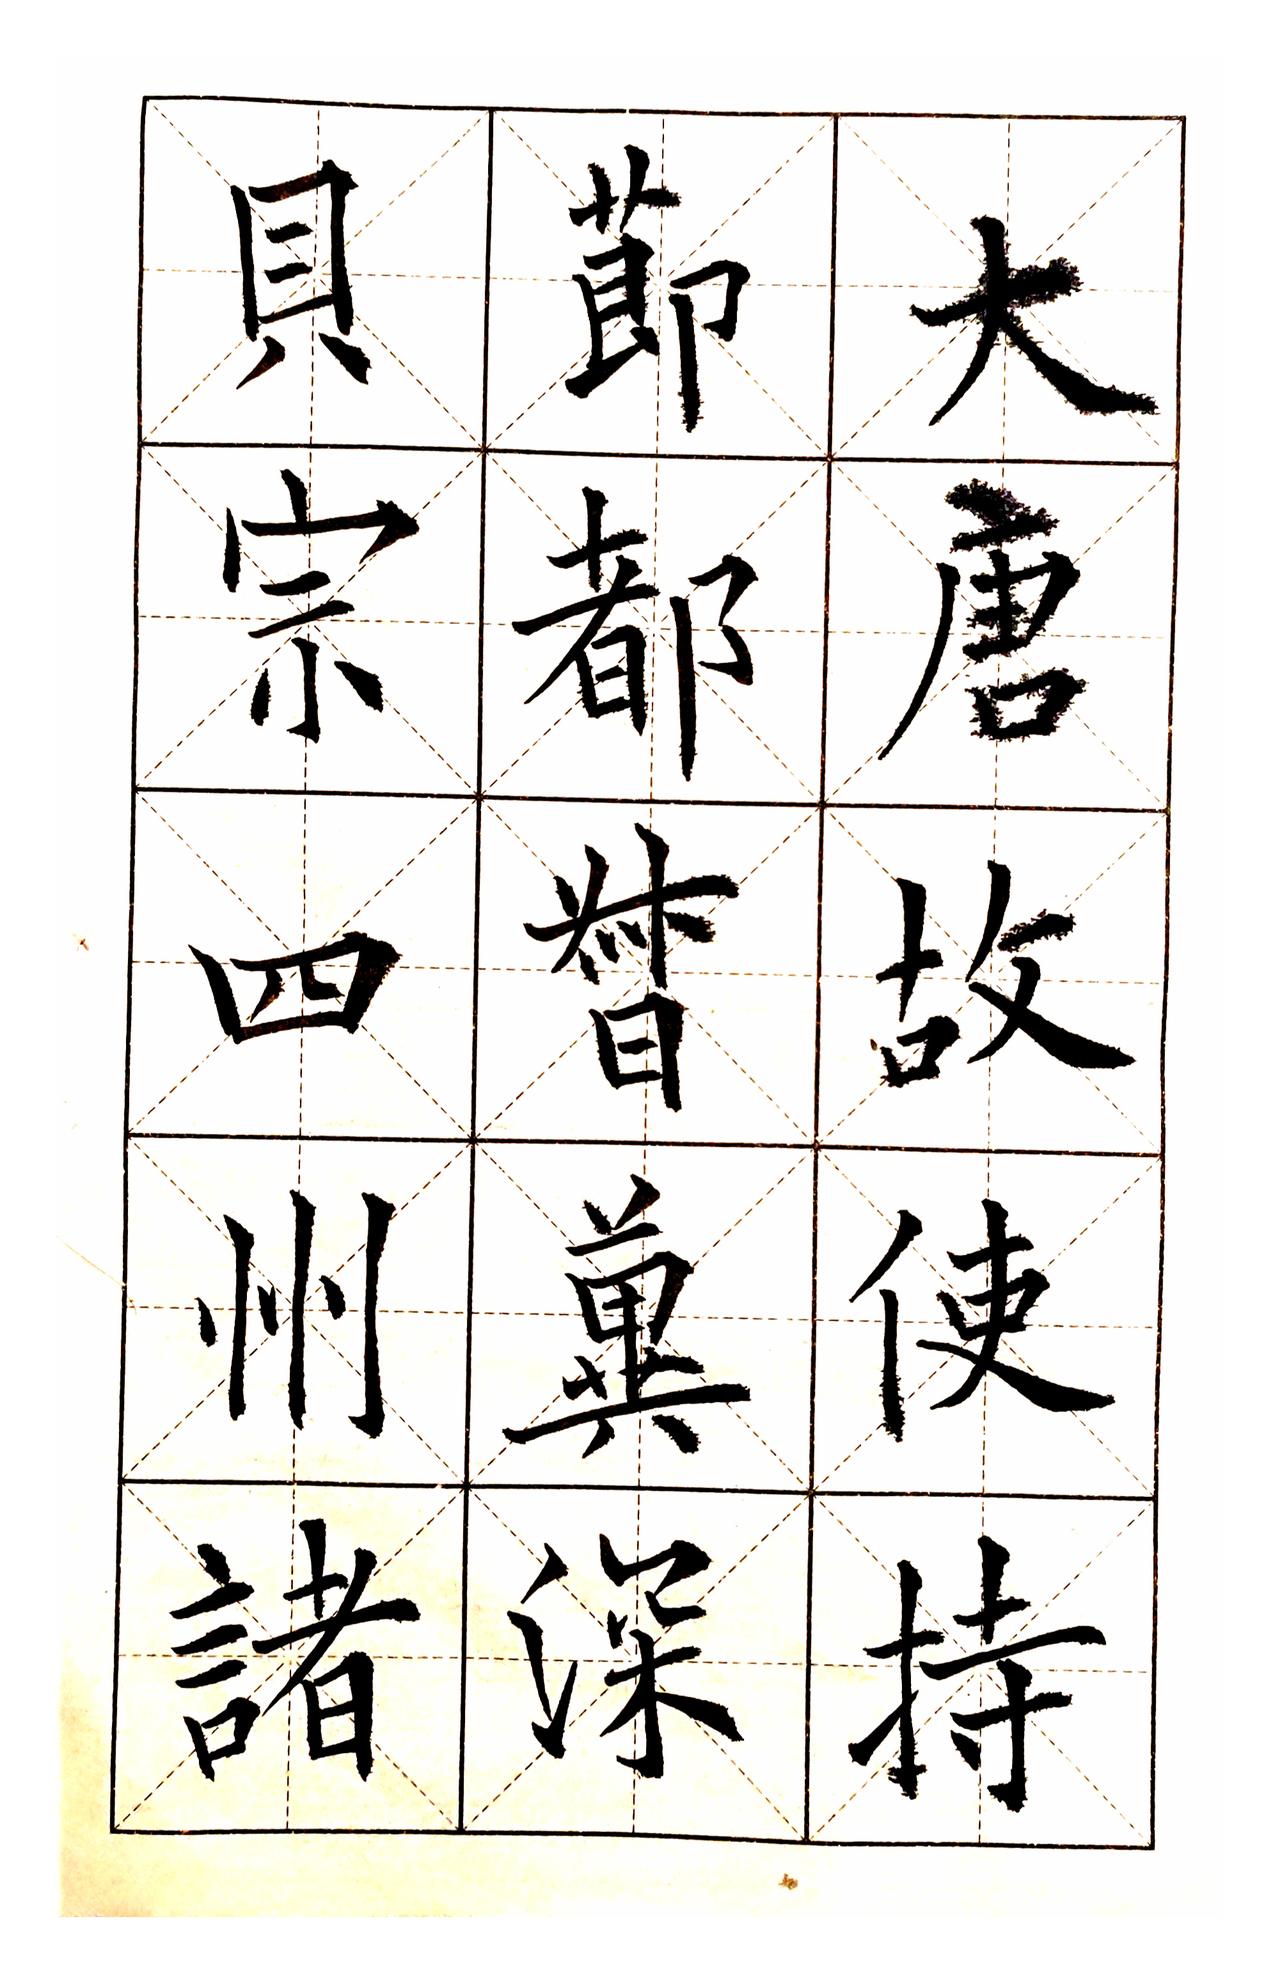 大唐故使持
節都督冀深
貝宗四州諸